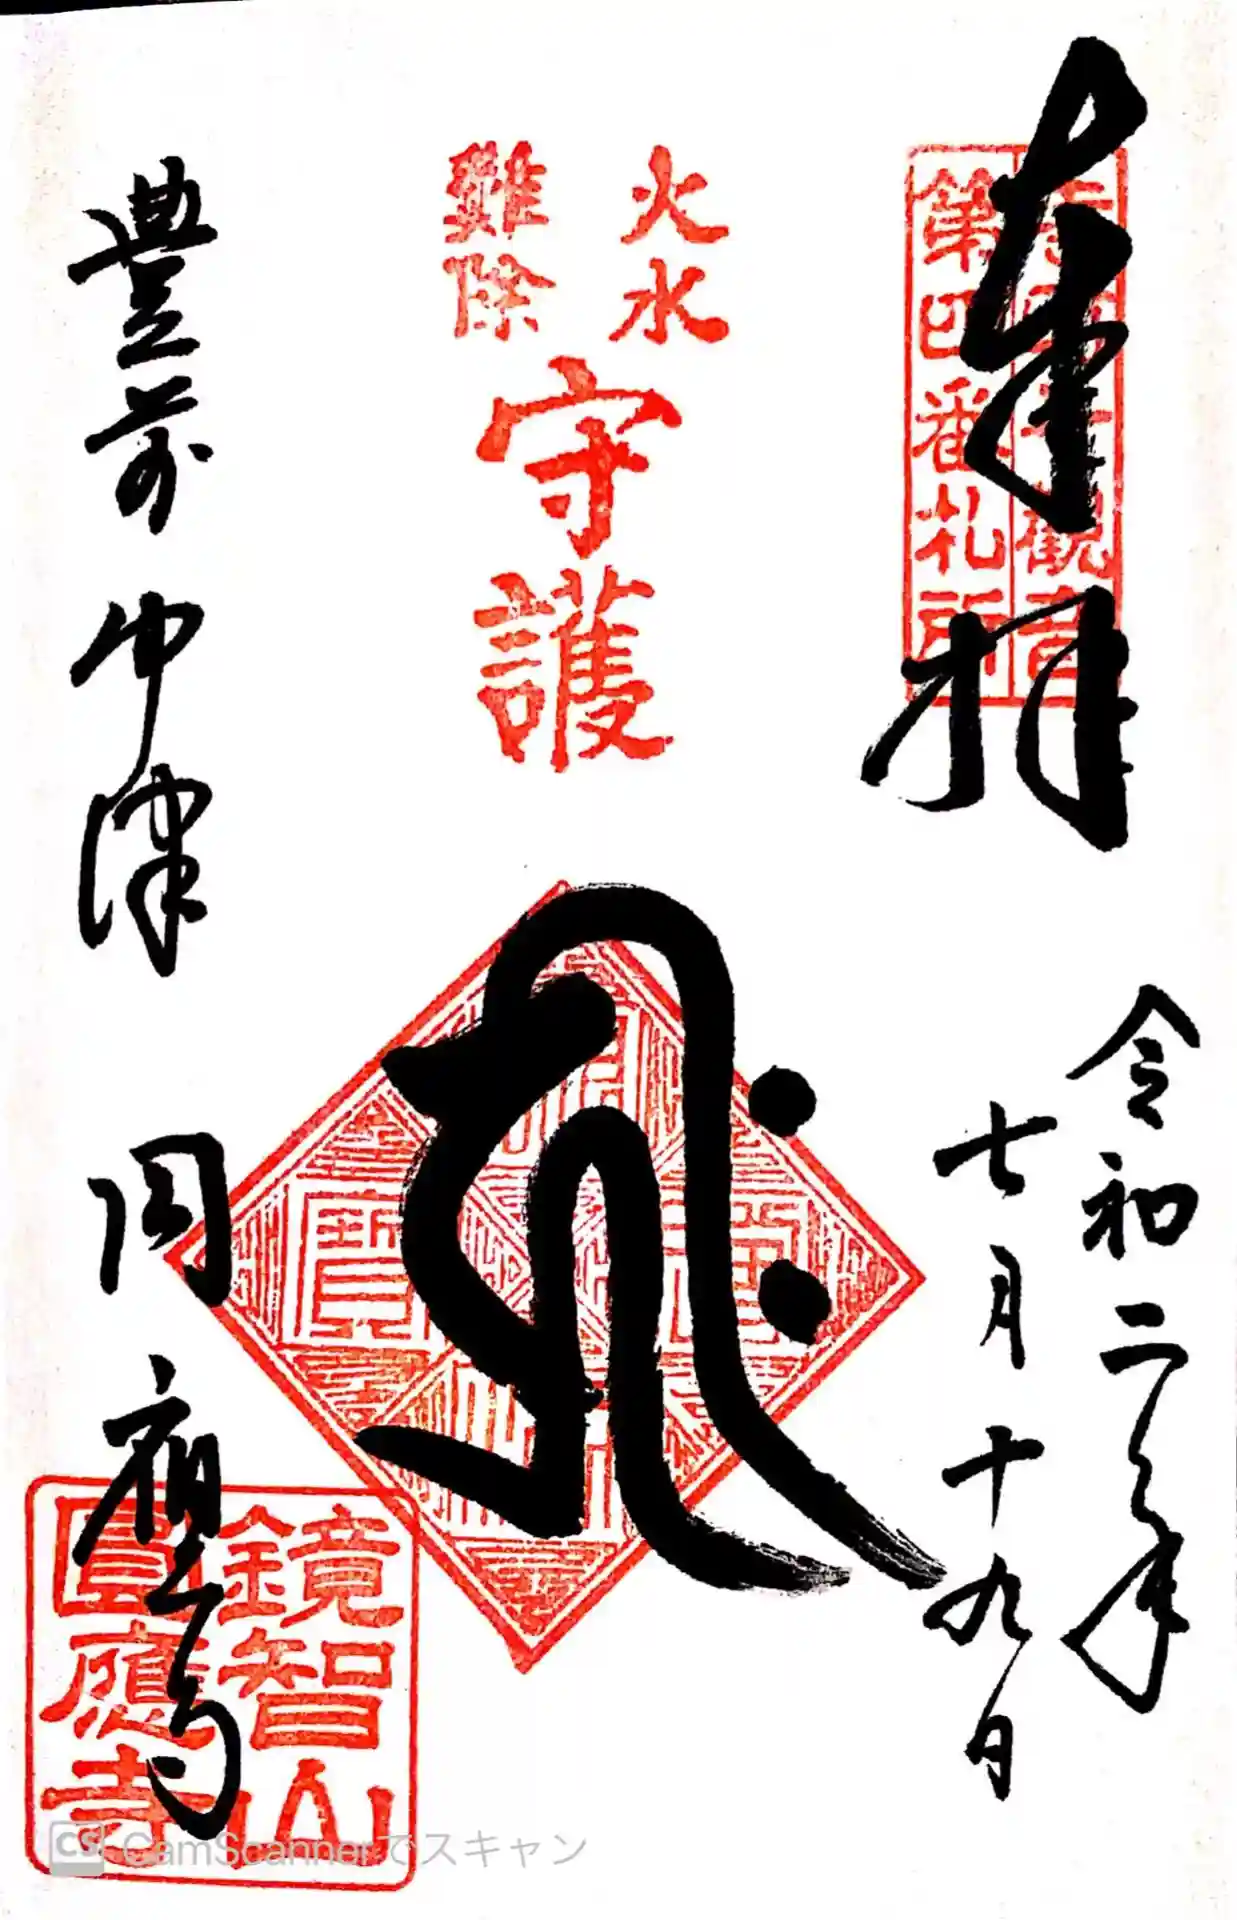 奉拝
第四番札所
令和二年
七月十九日
火水
難除
守護
豊前 中津
円應寺
鏡智山
圓應寺
CS CamScannerでスキャン